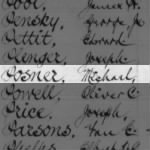 Pool, James H.
Pensky, George Jr
Pettit, Edward
Plenger, Joseph
Posner, Michael,
Powell, Oliver C.
Price, Joseph,
Parsons, C